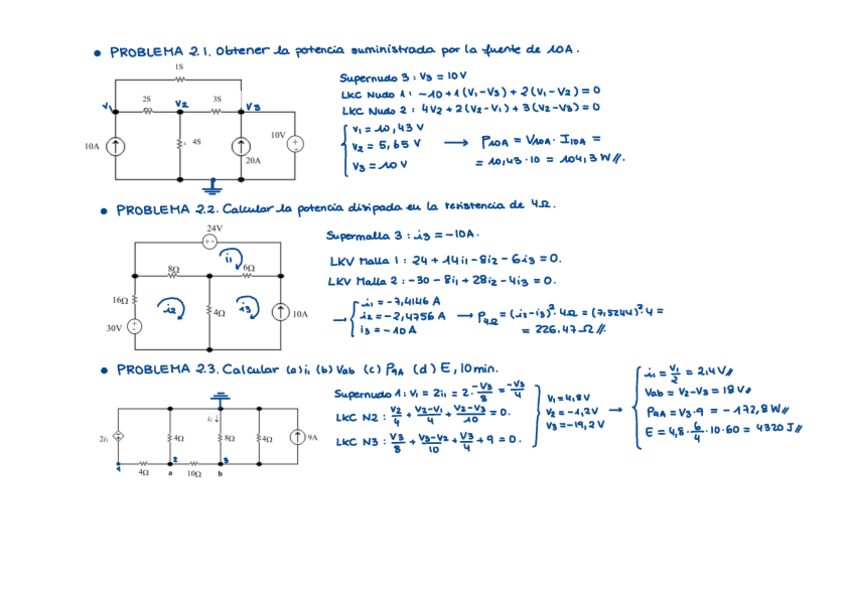 • PROBLEMA 2.1. Obtener la potencia suministrada por la fuente de 10A.
1S
2S
3S
V1
V2
V3
10A
4S
20A
10V
Supernudo 3: V3 = 10V
LKC Nudo 1: -10+1(V1-V3)+2(V1-V2)=0
LKC Nudo 2: 4V2+2(V2-V1)+3(V2-V3)=0
V1 = 10,43 V
V2 = 5,65 V
V3 = 10 V
→ P10A = V10A · I10A =
= 10,43·10 = 104,3 W//.
• PROBLEMA 2.2. Calcular la potencia disipada en la resistencia de 4Ω.
24V
i1
8Ω
6Ω
16Ω
i2
4Ω
i3
10A
30V
Supermalla 3: i3 = -10A.
LKV Malla 1: 24 + 14i1 - 8i2 - 6i3 = 0.
LKV Malla 2: -30 - 8i1 + 28i2 - 4i3 = 0.
→ i1 = -7,4146 A
i2 = -2,4756 A
i3 = -10 A
→ P4Ω = (i2-i3)²·4Ω = (7,5244)²·4 =
= 226.47 Ω//.
• PROBLEMA 2.3. Calcular (a) i1 (b) Vab (c) P9A (d) E, 10min.
2i1
4Ω
i1↓
8Ω
4Ω
9A
1
2
3
4Ω
a
10Ω
b
Supernudo 1: V1 = 2i1 = 2·-V3/8 = -V3/4
LKC N2: V2/4 + V2-V1/4 + V2-V3/10 = 0.
LKC N3: V3/8 + V3-V2/10 + V3/4 + 9 = 0.
V1 = 4,8V
V2 = -1,2V
V3 = -19,2V
→
i1 = V1/2 = 2,4V//
Vab = V2-V3 = 18V//
P9A = V3·9 = -172,8W//
E = 4,8·6/4·10·60 = 4320J//